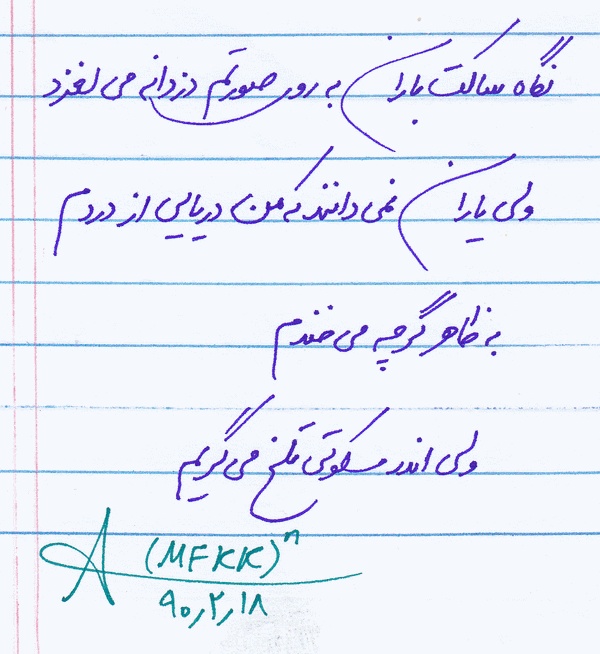 نگاه ساکت باران به روی صورتم دزدانه می لغزد
ولی یاران نمی دانند که من دریایی از دردم
به ظاهر گرچه می خندم
ولی اندر سکوتی تلخ می گریم
(MFKK)ⁿ
۹۰٫۲٫۱۸